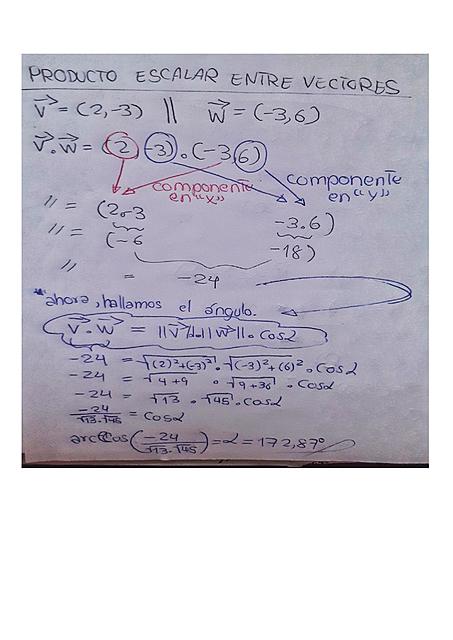 PRODUCTO ESCALAR ENTRE VECTORES
V⃗ = (2,-3) || W⃗ = (-3,6)
V⃗.W⃗ = (2 -3).(-3,6)
componente en "x"
componente en "y"
" = (2.-3 -3.6)
" = (-6 -18)
" = -24
*ahora, hallamos el ángulo.
V⃗.W⃗ = ||V⃗||.||W⃗||.cosα
-24 = √(2)²+(-3)² . √(-3)²+(6)² . cosα
-24 = √4+9 . √9+36 . cosα
-24 = √13 . √45 . cosα
-24/√13.√45 = cosα
arc cos(-24/√13.√45) = α = 172,87°